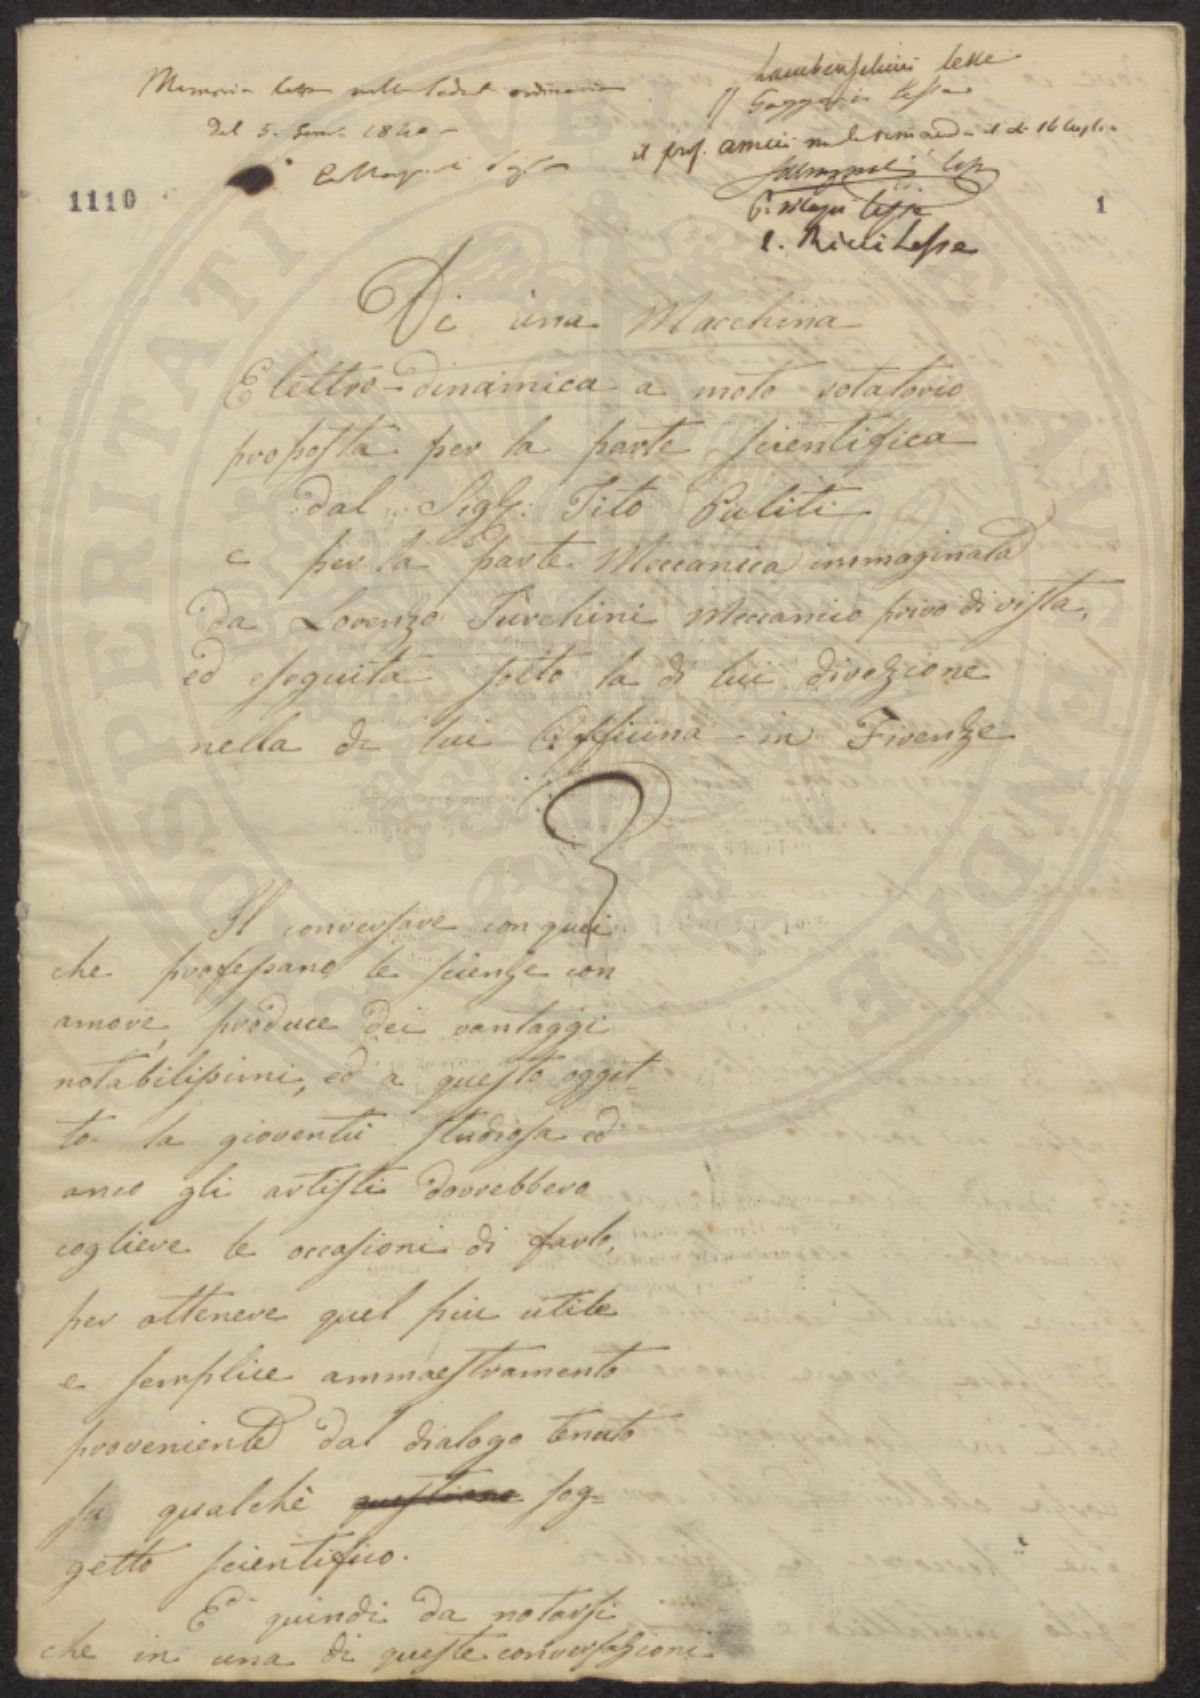 Memoria letta nella Seduta ordinaria
del 5.
lesse
il prof. Amici
lesse
C. Ricci Lesse
1110
1
Di una Macchina
Elettro-dinamica a moto rotatorio
proposta per la parte scientifica
dal Sigr: Tito Puliti
e per la parte Meccanica immaginata
da Lorenzo Turchini Meccanico privo di vista,
ed eseguita sotto la di lui direzione
nella di lui Officina in Firenze
Il conversare con quei
che professano le scienze con
amore, produce dei vantaggi
notabilissimi, ed a questo ogget=
to la gioventù studiosa ed
anco gli artisti dovrebbero
cogliere le occasioni di farlo,
per ottenere quel più utile
e semplice ammaestramento
proveniente dal dialogo tenuto
su qualche questione sog=
getto scientifico.
E' quindi da notarsi
che in una di queste conversazioni